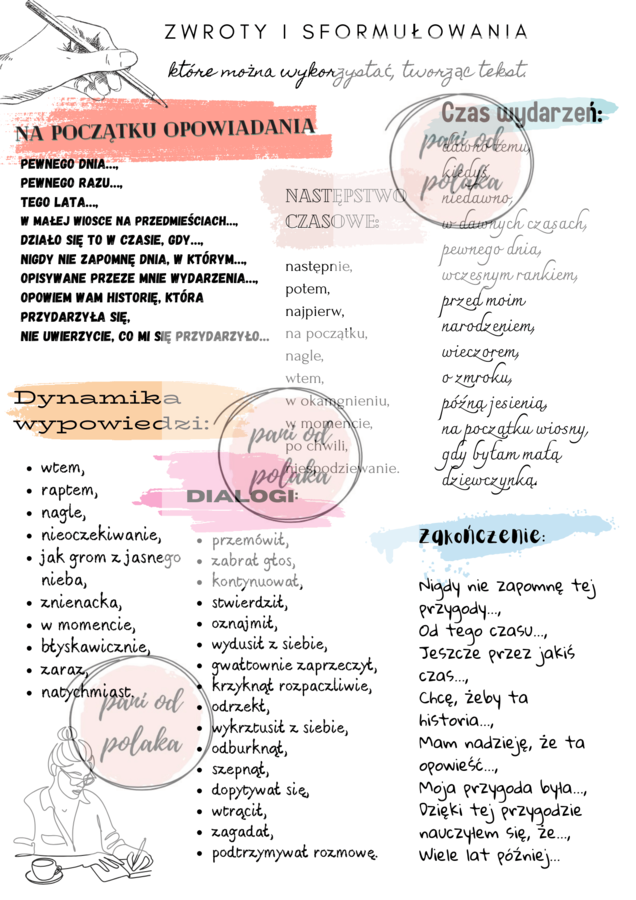 ZWROTY I SFORMUŁOWANIA
które można wykorzystać, tworząc tekst.
NA POCZĄTKU OPOWIADANIA
PEWNEGO DNIA...,
PEWNEGO RAZU...,
TEGO LATA...,
W MAŁEJ WIOSCE NA PRZEDMIEŚCIACH...,
DZIAŁO SIĘ TO W CZASIE, GDY...,
NIGDY NIE ZAPOMNĘ DNIA, W KTÓRYM...,
OPISYWANE PRZEZE MNIE WYDARZENIA...,
OPOWIEM WAM HISTORIĘ, KTÓRA
PRZYDARZYŁA SIĘ,
NIE UWIERZYCIE, CO MI SIĘ PRZYDARZYŁO...
NASTĘPSTWO
CZASOWE:
następnie,
potem,
najpierw,
na początku,
nagle,
wtem,
w okamgnieniu,
w momencie,
po chwili,
niespodziewanie.
Czas wydarzeń:
dawno temu,
kiedyś,
niedawno,
w dawnych czasach,
pewnego dnia,
wczesnym rankiem,
przed moim
narodzeniem,
wieczorem,
o zmroku,
późną jesienią,
na początku wiosny,
gdy byłam małą
dziewczynką.
pani od
polaka
Dynamika
wypowiedzi:
wtem,
raptem,
nagle,
nieoczekiwanie,
jak grom z jasnego
nieba,
znienacka,
w momencie,
błyskawicznie,
zaraz,
natychmiast.
pani od
polaka
DIALOGI:
przemówił,
zabrał głos,
kontynuował,
stwierdził,
oznajmił,
wydusił z siebie,
gwałtownie zaprzeczył,
krzyknął rozpaczliwie,
odrzekł,
wykrztusił z siebie,
odburknął,
szepnął,
dopytywał się,
wtrącił,
zagadał,
podtrzymywał rozmowę.
pani od
polaka
Zakończenie:
Nigdy nie zapomnę tej
przygody...,
Od tego czasu...,
Jeszcze przez jakiś
czas...,
Chcę, żeby ta
historia...,
Mam nadzieję, że ta
opowieść...,
Moja przygoda była...,
Dzięki tej przygodzie
nauczyłem się, że...,
Wiele lat później...